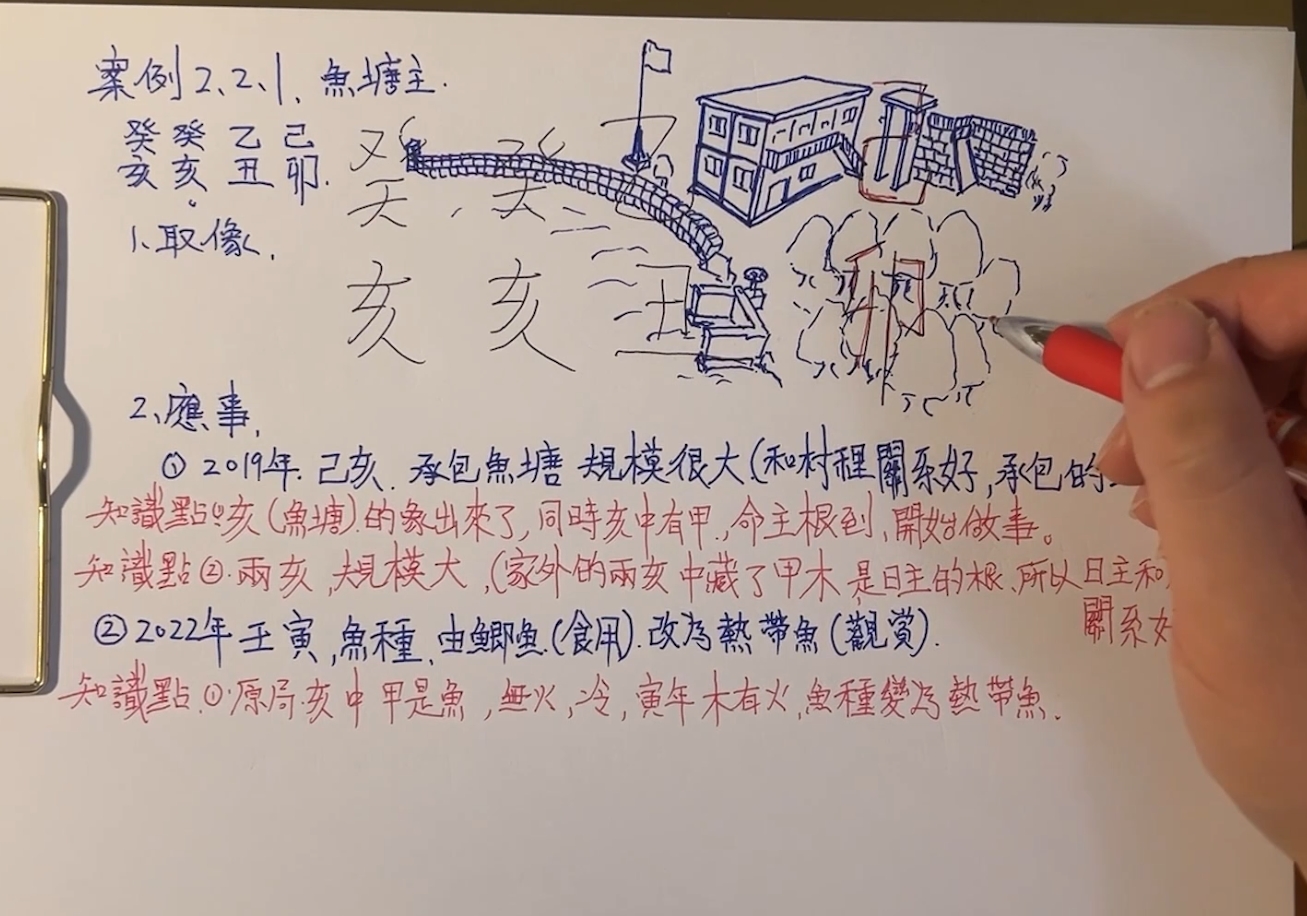 案例2、2、1、魚塘主.
癸癸乙己
亥亥丑卯.
1、取像.
癸 癸
天 天
亥 亥 丑 卯
2、應事,
① 2019年.己亥.承包魚塘 規模很大.(和村裡關系好,承包的
知識點①.亥(魚塘).的象出來了,同時亥中有甲.,命主根到,開始做事。
知識點②.兩亥,規模大,(家外的兩亥中藏了甲木是日主的根,所以日主和
關系好
② 2022年壬寅,魚種,由鯽魚.(食用).改為熱帶魚(觀賞).
知識點.①.原局.亥中甲是魚,無火,冷,寅年木有火,魚種變為熱帶魚.